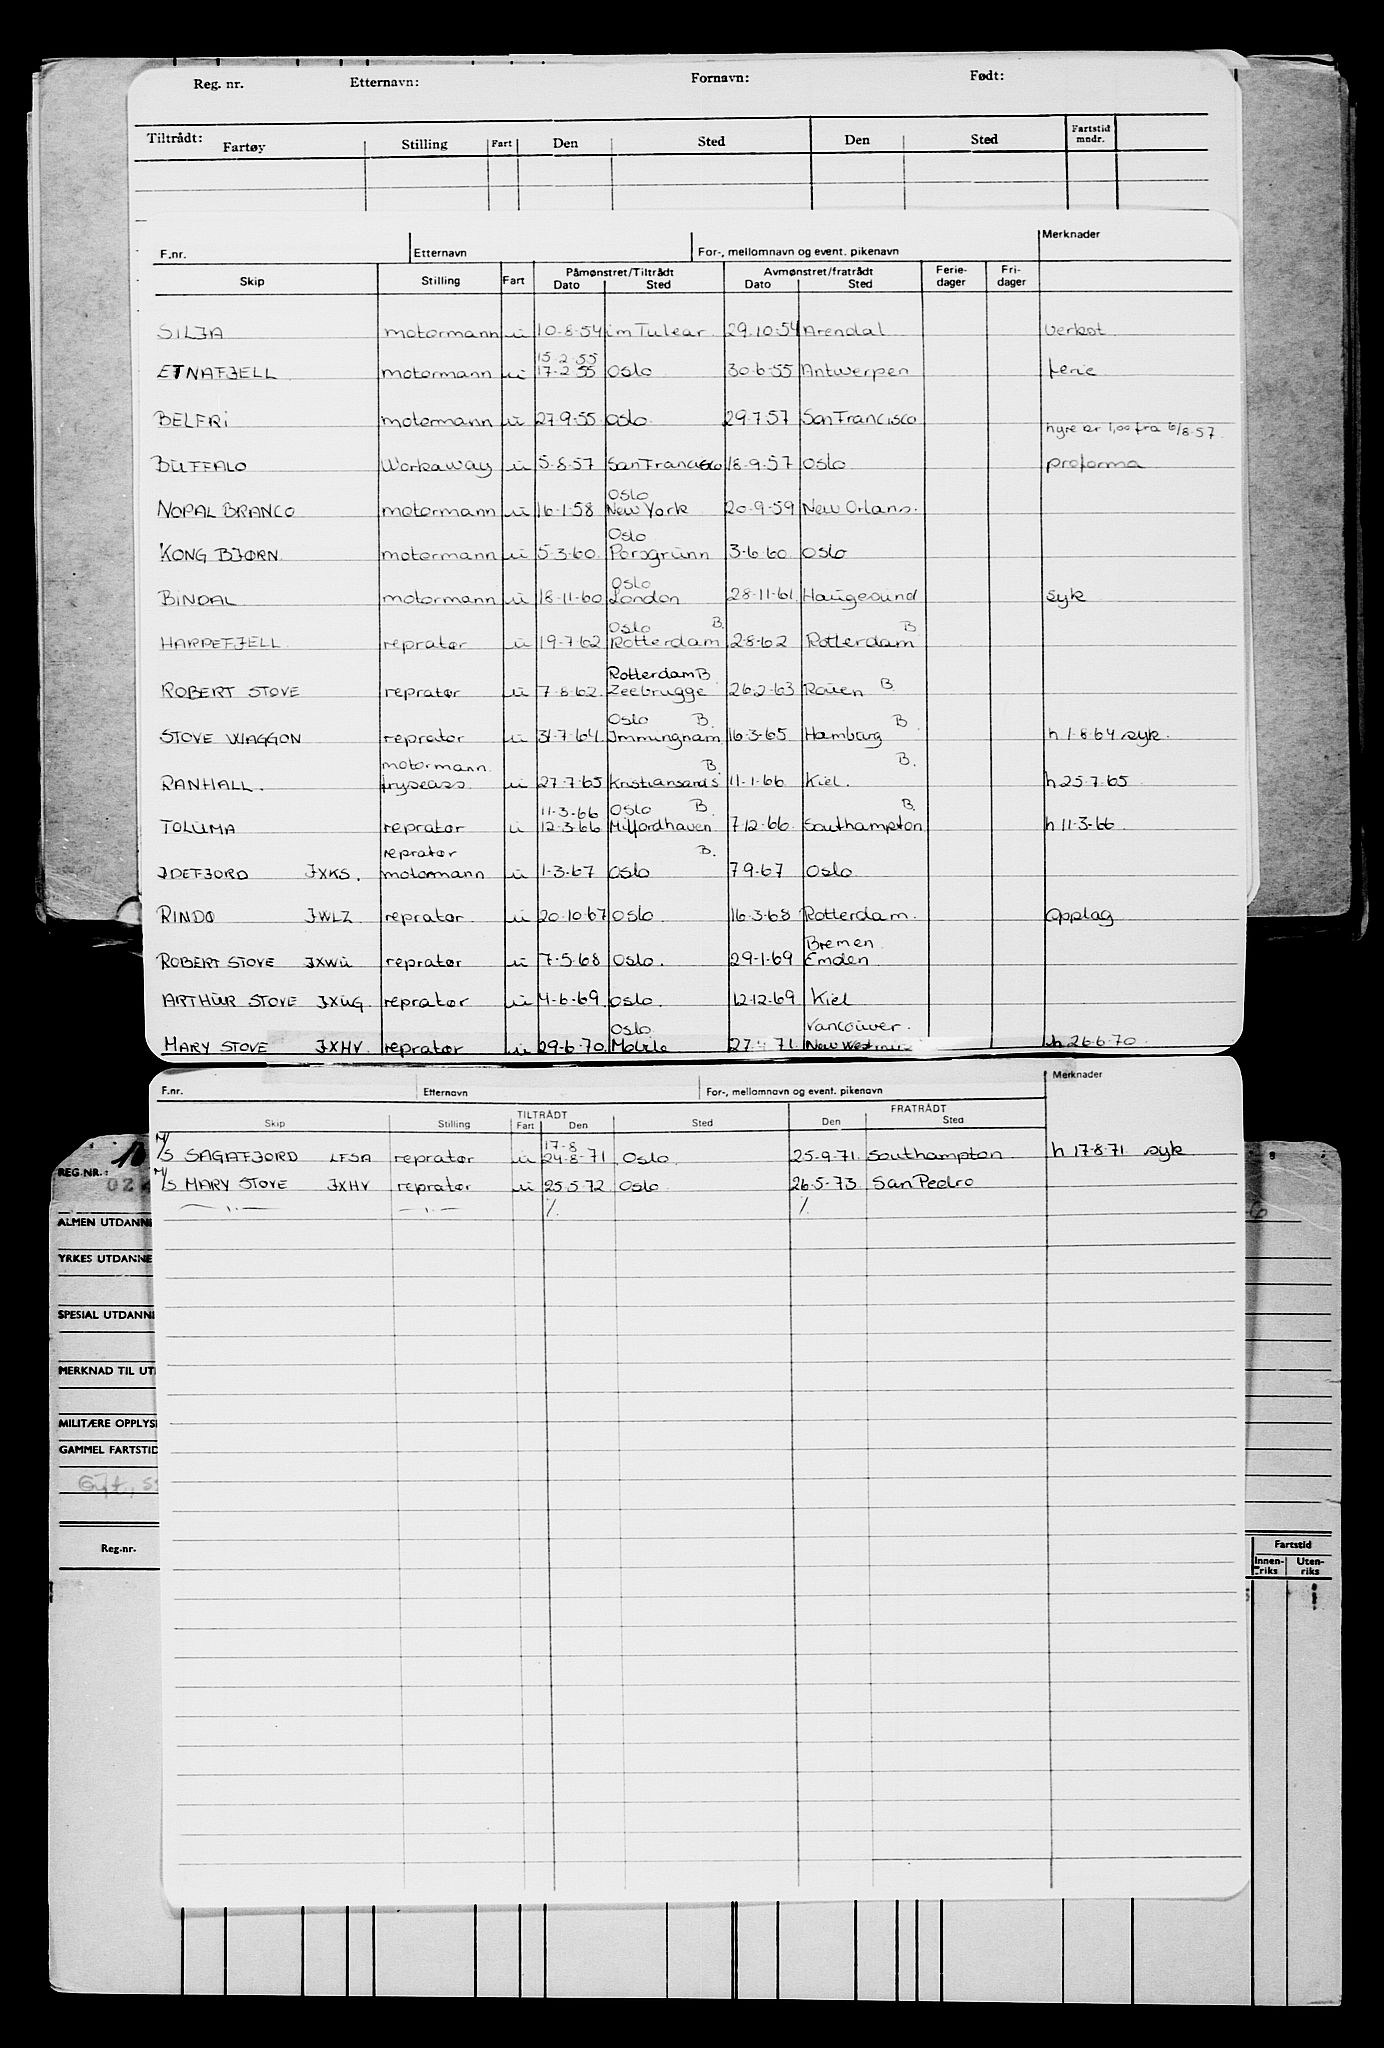 Reg. nr. Etternavn: Fornavn: Født:
Tiltrådt: Fartøy Stilling Fart Den Sted Den Sted Fartstid mndr.
F.nr. Etternavn For-, mellomnavn og event. pikenavn Merknader
Skip Stilling Fart Påmønstret/Tiltrådt Avmønstret/fratrådt Ferie- Fri-
Dato Sted Dato Sted dager dager
SILJA motormann u 10-8-54 im Tulear 29.10.54 Arendal verkst
15.2.55
ETNAFJELL motormann u 17-2-55 Oslo 30-6-55 Antwerpen ferie
BELFRI motormann u 27-9-55 Oslo. 29.7.57 San Francisco
hyre kr 1,00 fra 6/8-57
BUFFALO Workaway u 5-8-57 San Francisco 18-9-57 Oslo proforma
Oslo
NOPAL BRANCO motormann u 16-1-58 New York 20-9-59 New Orlans.
Oslo
KONG BJØRN motormann u 5-3-60 Porsgrunn 3-6-60 Oslo
Oslo
BINDAL motormann u 18-11-60 London 28-11-61 Haugesund syk
Oslo B. B
HARPEFJELL repratør u 19-7-62 Rotterdam 2-8-62 Rotterdam
Rotterdam B.
ROBERT STOVE repratør u 7-8-62 Zeebrugge 26.2-63 Rouen B
Oslo B. B
STOVE WAGGON repratør u 31-7-64 Immingham 16-3-65 Hamburg h 1-8-64 syk.
motormann B. B.
RANHALL. fryseass. u 27-7-65 Kristiansand S 11-1-66 Kiel. h 25-7-65
11-3-66 Oslo B. B.
TOLUMA repratør u 12-3-66 Milfordhaven 7-12-66 Southampton h 11-3-66
repratør B.
IDEFJORD JXKS. motormann u 1-3-67 Oslo 7-9-67 Oslo
RINDØ JWLZ repratør u 20-10-67 Oslo 16-3-68 Rotterdam. Opplag
Bremen
ROBERT STOVE JXWU repratør u 7-5-68 Oslo. 29-1-69 Emden
ARTHUR STOVE JXUG repratør u 4-6-69 Oslo. 12-12-69 Kiel
Oslo Vancouver.
MARY STOVE JXHV repratør u 29-6-70 Mobile 71 New h 26-6-70
F.nr. Etternavn For-, mellomnavn og event. pikenavn Merknader
TILTRÅDT FRATRÅDT
Skip Stilling Fart Den Sted Den Sted
17-8
M/S SAGAFJORD LFSA repratør u 24-8-71 Oslo 25-9-71 Southampton h 17-8-71 syk
M/S MARY STOVE JXHV repratør u 25-5-72 Oslo 26-5-73 San Pedro
—"— —"— ٪ ٪
REG.NR.:
ALMEN UTDANNE
YRKES UTDANNE
SPESIAL UTDANNE
MERKNAD TIL UT
MILITÆRE OPPLYS
GAMMEL FARTSTID
Gift,
Reg.nr. Fartstid
Innen-riks Uten-riks